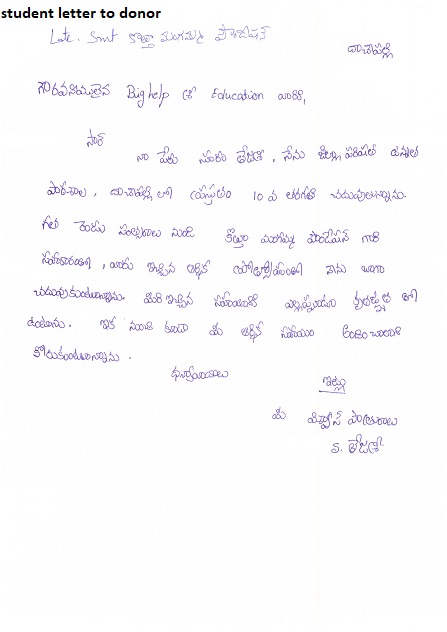 student letter to donor
Late. Smt కొత్తా మంగమ్మ ఫౌండేషన్
దాచేపల్లి
గౌరవనీయులైన Big help for Education వారికి,
సార్
నా పేరు తేజశ్రీ, నేను జిల్లా పరిషత్ ఉన్నత
పాఠశాల, దాచేపల్లి లో ప్రస్తుతం 10 వ తరగతి చదువుతున్నాను.
గత రెండు సంవత్సరాలు నుండి కొత్తా మంగమ్మ ఫౌండేషన్ గారి
సహకారంతో, వారు ఇచ్చిన ఆర్థిక నేను బాగా
చదువుకుంటున్నాను. మీరు ఇచ్చిన సహాయంతో ఎల్లప్పుడూ లో
ఉంటాను. ఇక నుంచి కూడా మీ ఆర్థిక సహాయం అందించాలని
కోరుకుంటున్నాను.
ధన్యవాదాలు
ఇట్లు
మీ విశ్వాస పాత్రురాలు
S. తేజశ్రీ